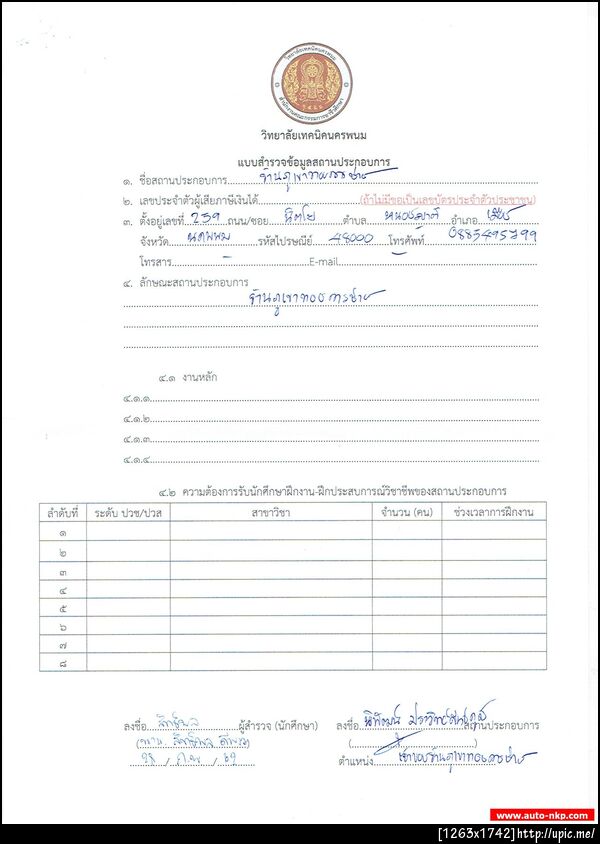 วิทยาลัยเทคนิคนครพนม
สำนักงานคณะกรรมการการอาชีวศึกษา
วิทยาลัยเทคนิคนครพนม
แบบสำรวจข้อมูลสถานประกอบการ
๑. ชื่อสถานประกอบการ ร้านภูเขาทองการช่าง
๒. เลขประจำตัวผู้เสียภาษีเงินได้ (ถ้าไม่มีขอเป็นเลขบัตรประจำตัวประชาชน)
๓. ตั้งอยู่เลขที่ 259 ถนน/ซอย นิตโย ตำบล หนองญาติ อำเภอ เมือง
จังหวัด นครพนม รหัสไปรษณีย์ 48000 โทรศัพท์
โทรสาร - E-mail -
๔. ลักษณะสถานประกอบการ
ร้านภูเขาทองการช่าง
๔.๑ งานหลัก
๔.๑.๑
๔.๑.๒
๔.๑.๓
๔.๑.๔
๔.๒ ความต้องการรับนักศึกษาฝึกงาน-ฝึกประสบการณ์วิชาชีพของสถานประกอบการ
ลำดับที่ ระดับ ปวช/ปวส สาขาวิชา จำนวน (คน) ช่วงเวลาการฝึกงาน
๑
๒
๓
๔
๕
๖
๗
๘
ลงชื่อ ผู้สำรวจ (นักศึกษา) ลงชื่อ สถานประกอบการ
ตำแหน่ง เจ้าของร้านภูเขาทองการช่าง
www.auto-nkp.com
[1263x1742]http://upic.me/